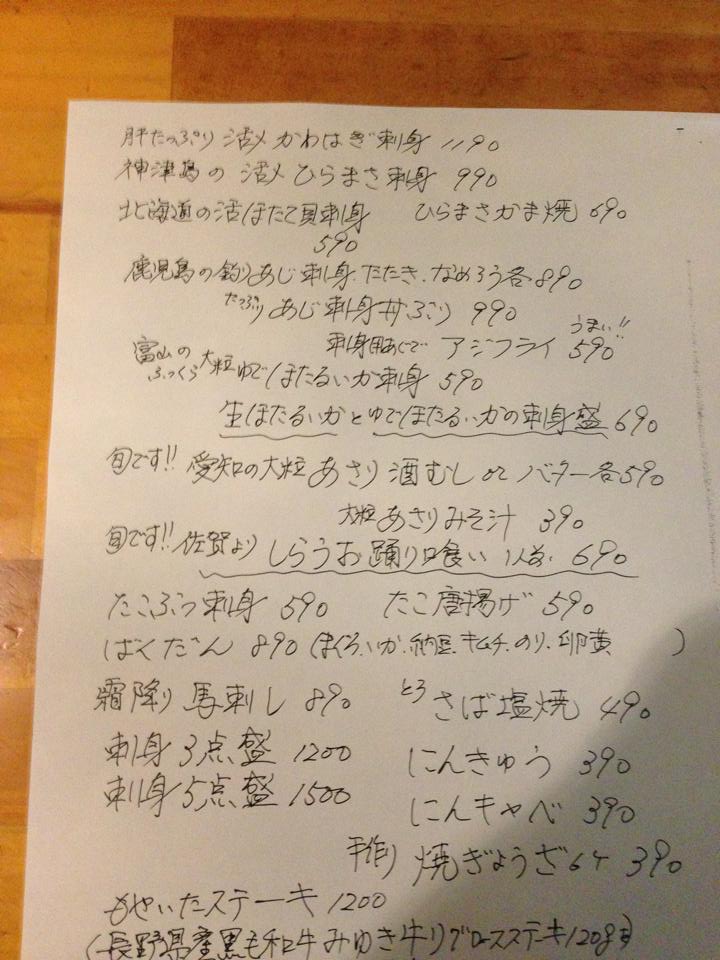 肝たっぷり 活〆 かわはぎ刺身 1190
神津島の 活〆 ひらまさ刺身 990
北海道の活ほたて貝刺身 ひらまさかま焼 690
590
鹿児島の釣りあじ刺身.たたき.なめろう各890
たっぷり あじ刺身丼ぶり 990
うまい!!
刺身用あじで アジフライ 590
富山の ふっくら 大粒 ゆでほたるいか刺身 590
生ほたるいかとゆでほたるいかの刺身盛 690
旬です!! 愛知の大粒 あさり酒むし or バター各590
大粒 あさりみそ汁 390
旬です!! 佐賀より しらうお踊り喰い 1人前. 690
たこぶつ刺身 590 たこ唐揚げ 590
ばくだん 890 (まぐろ.いか.納豆.キムチ.のり.卵黄 )
霜降り馬刺し 890 とろ さば塩焼 490
刺身3点盛 1200 にんきゅう 390
刺身5点盛 1500 にんキャベ 390
手作り 焼ぎょうざ6ケ 390
ステーキ 1200
(長野県産黒毛和牛みゆき牛リブロースステーキ120g